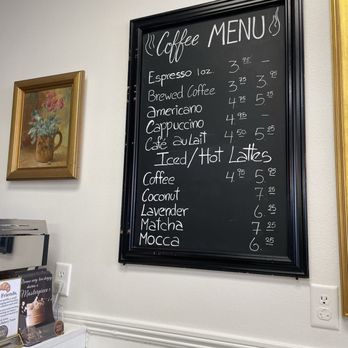 Coffee MENU
Espresso 1oz. 3.95 -
Brewed Coffee 3.25 3.95
americano 4.25 5.25
Cappuccino 4.75 -
Café au Lait 4.50 5.25
Iced/Hot Lattes
Coffee 4.95 5.95
Coconut 7.25
Lavender 6.25
Matcha 7.25
Mocca 6.25
Friends,
Masterpiece